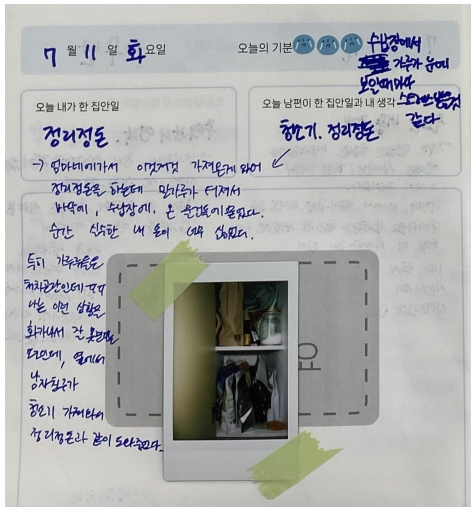 7 월 11 일 화 요일
오늘의 기분
수납장에서
가루가 눈에
보일때마다
같다
오늘 내가 한 집안일
정리정돈
오늘 남편이 한 집안일과 내 생각
청소기, 정리정돈
→ 엄마네에가서 이것저것 가져온게 있어
정리정돈을 하는데 밀가루가 터져서
바닥에, 수납장에, 온 물건들에 묻었다.
순간 실수한 내 손이 너무 싫었다.
특히 가루류들은
나는 이런 상황을
화가나서 잘 못본
모인데, 옆에서
남자친구가
청소기 가져와서
정리정돈과 같이 도와주었다.